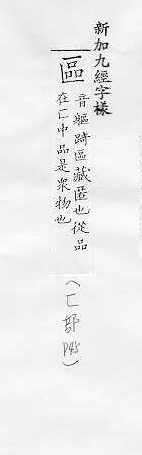 新加九經字樣
區
音軀踦區藏匿也從品
在匸中品是眾物也
(匸部 P45)